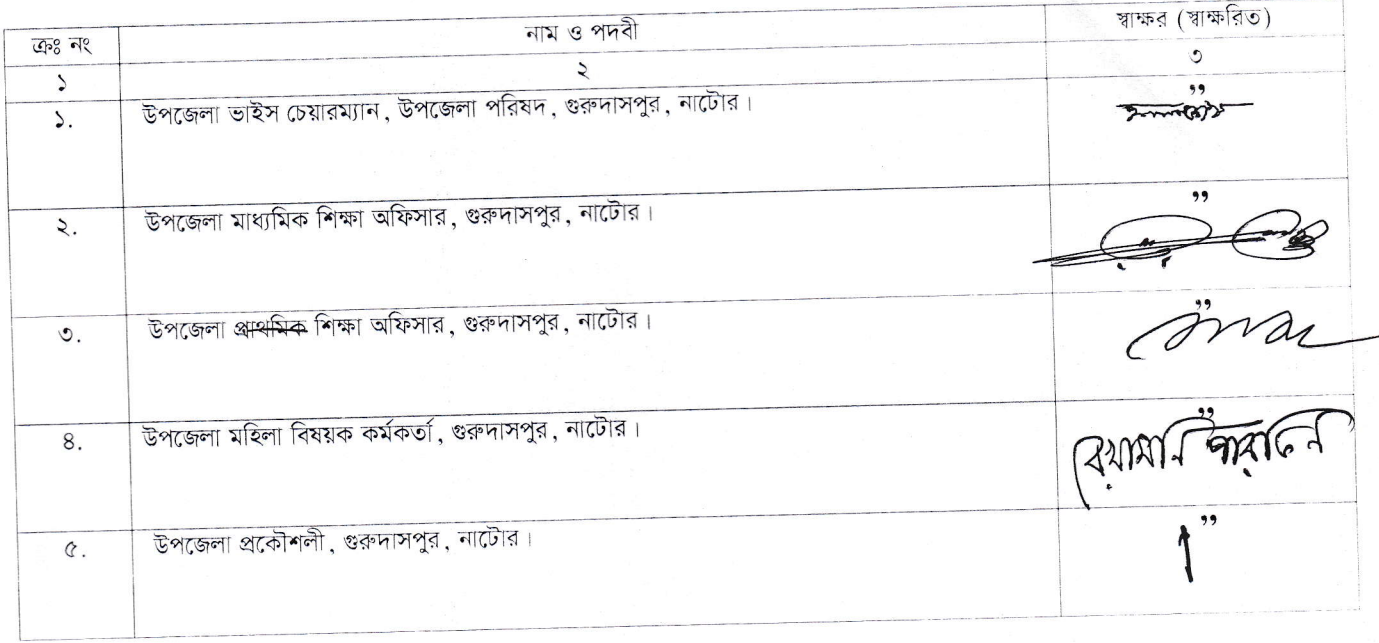 ক্রঃ নং নাম ও পদবী স্বাক্ষর (স্বাক্ষরিত)
১ ২ ৩
১. উপজেলা ভাইস চেয়ারম্যান, উপজেলা পরিষদ, গুরুদাসপুর, নাটোর। ”
২. উপজেলা মাধ্যমিক শিক্ষা অফিসার, গুরুদাসপুর, নাটোর। ”
৩. উপজেলা প্রাথমিক শিক্ষা অফিসার, গুরুদাসপুর, নাটোর। ”
৪. উপজেলা মহিলা বিষয়ক কর্মকর্তা, গুরুদাসপুর, নাটোর। ”
৫. উপজেলা প্রকৌশলী, গুরুদাসপুর, নাটোর। ”